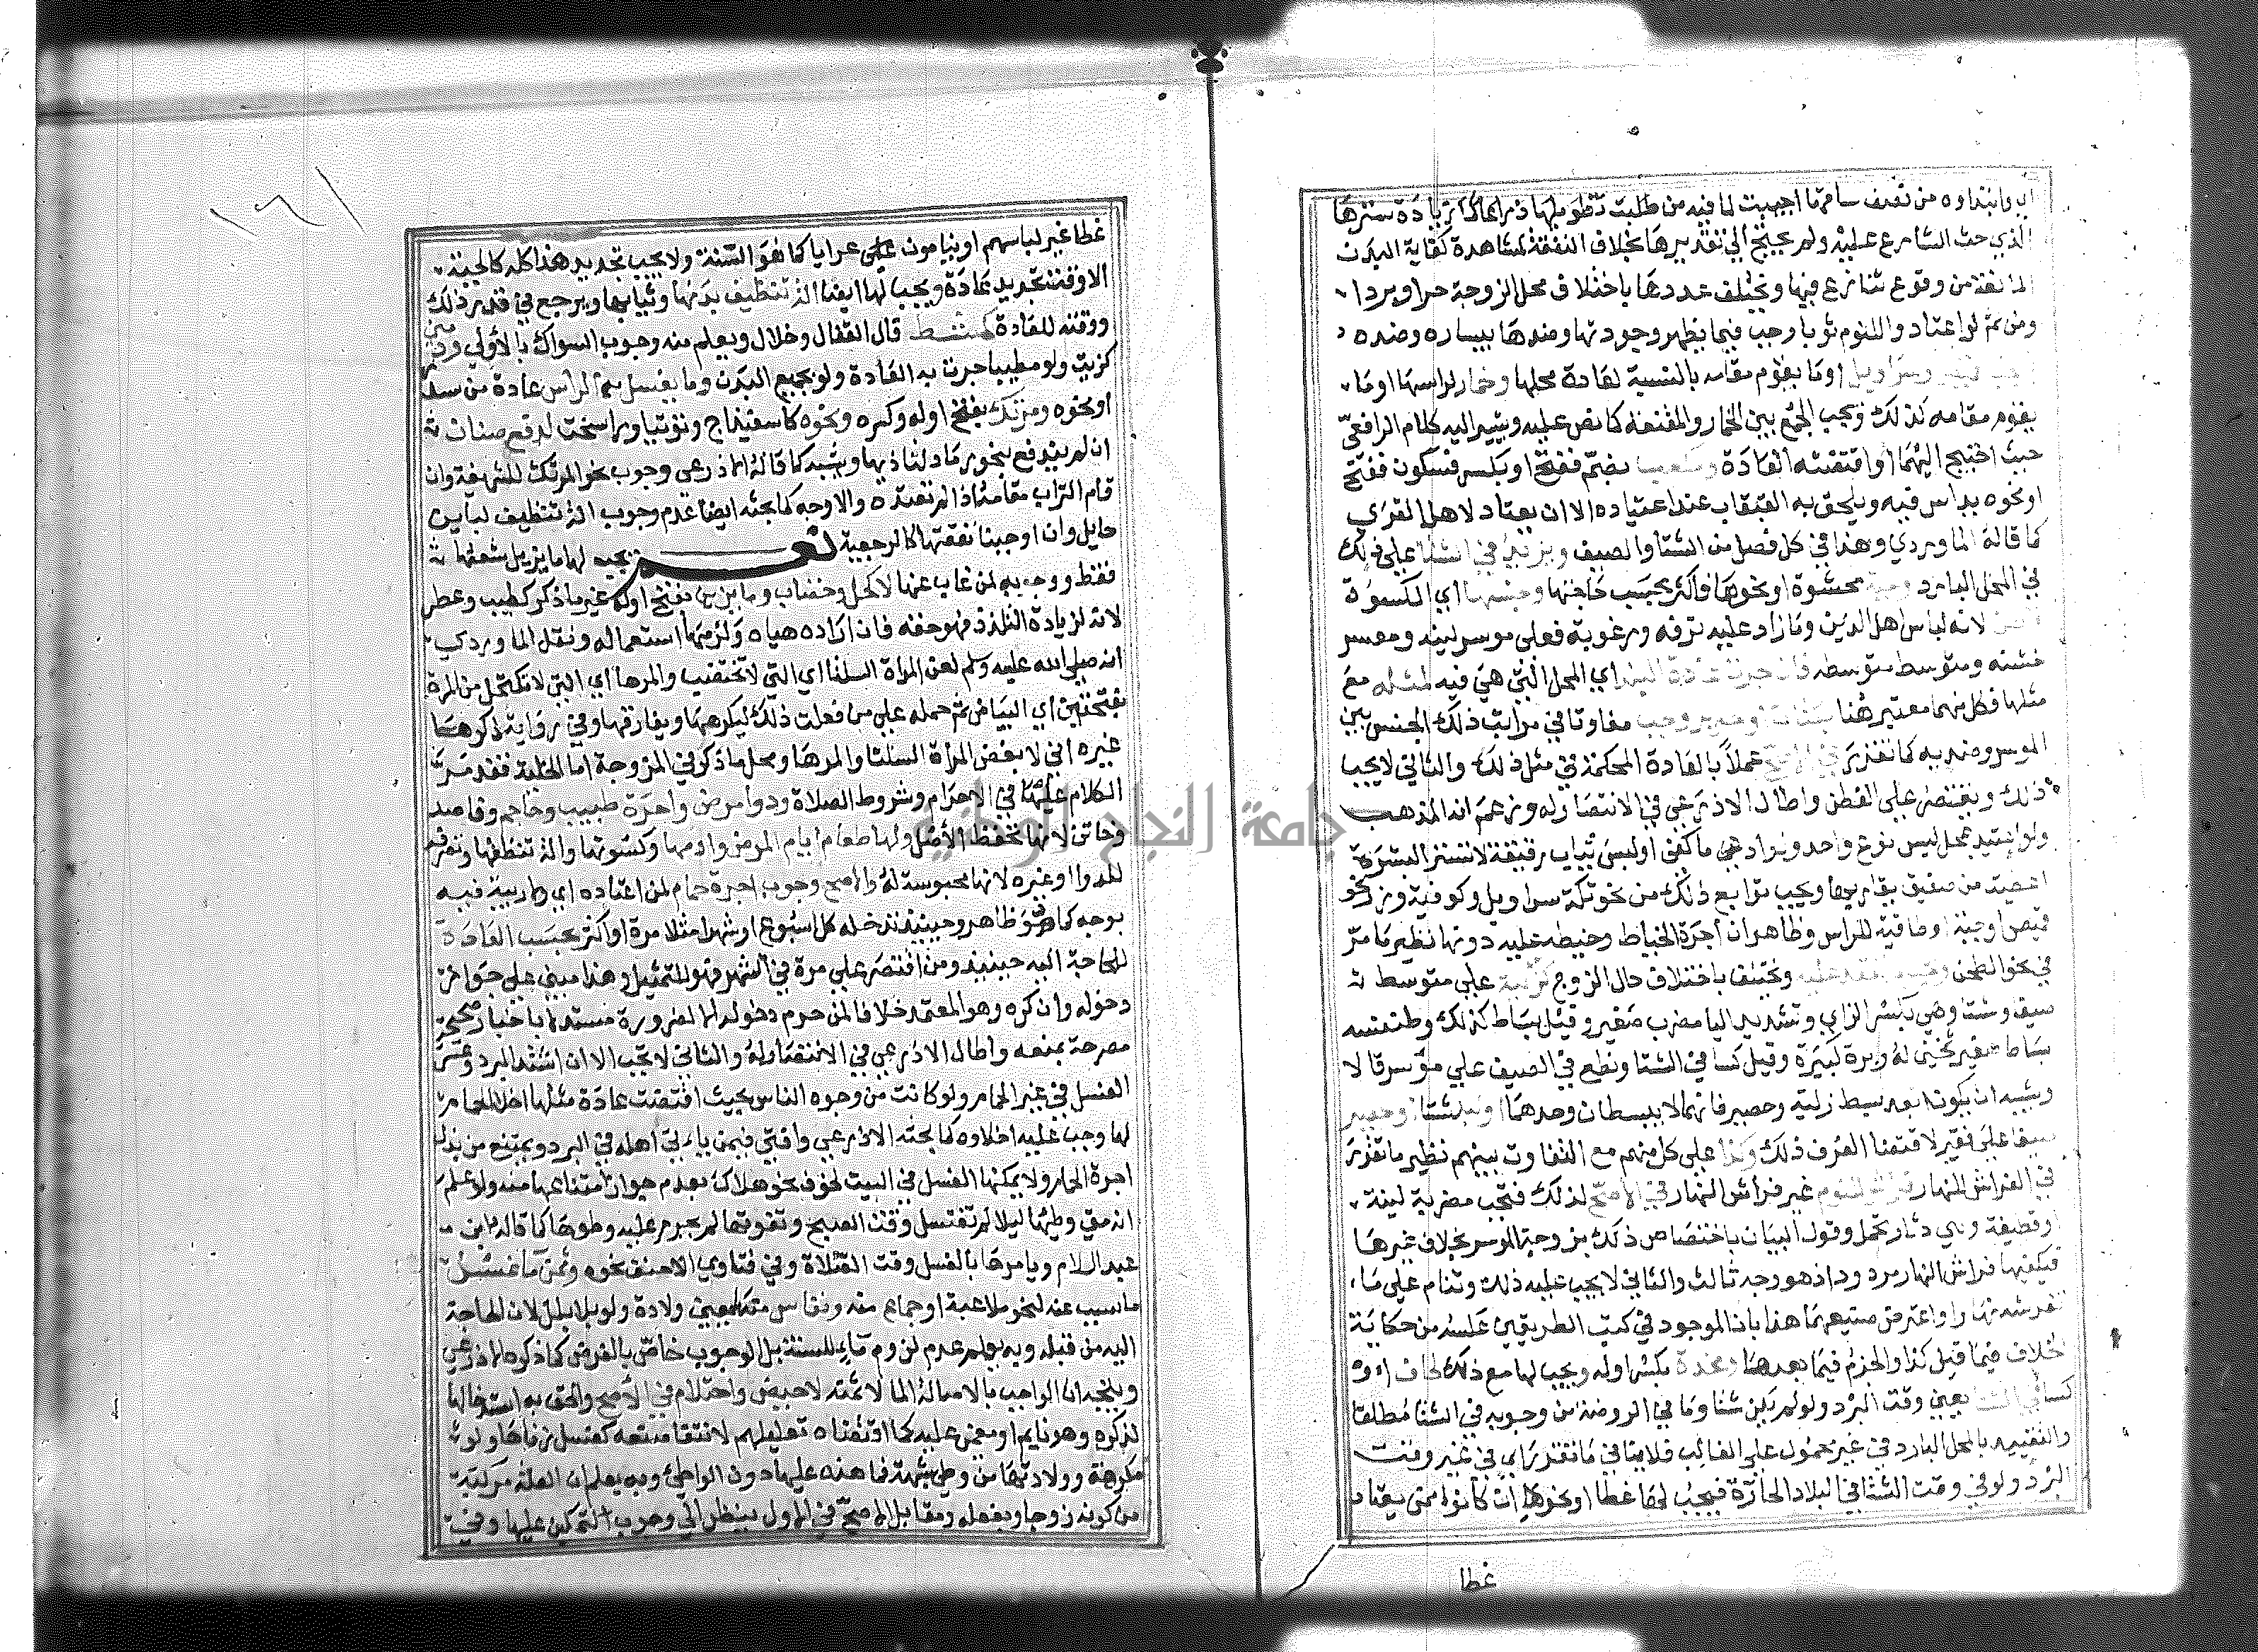 اي وابتداوه من نصف ساقها اجيبت لما فيه من طلبت تطويلها ذراعا كما زيادة سترها
الذي حث الشارع عليه ولم يحتج الي تقديرها بخلاف النفقة لمشاهدة كفاية البدن
المانعة من وقوع تنازع فيها ويختلف عددها باختلاف محل الزوجة حرا وبردا
ومن ثم لو اعتادوا للنوم ثوبا وجب فيما يظهر وجودتها وضدها بيساره وضده
قميص وسراويل اوما يقوم مقامه بالنسبة لعادة محلها وخمار لراسها اوما
يقوم مقامه كذلك ويجب الجمع بين الخمار والمقنعة كما نص عليه ويشير اليه كلام الرافعي
حيث احتيج اليهما او اقتضته العادة ومكعب بضم ففتح او بكسر فسكون ففتح
او نحوه يداس فيه ويلحق به القبقاب عند اعتياده الا ان يعتاد لاهل القري
كما قالة الماوردي وهذا في كل فصل من الشتا والصيف ويزيد في الشتا علي ذلك
في المحل البارد وجبة محشوة او نحوها فاكثر بحسب حاجتها وجنسها اي الكسوة
قطن لانه لباس اهل الدين وما زاد عليه ترفه ورعوبة فعلي موسر لينه ومعسر
خشنه ومتوسط متوسطه فان جرت عادة البلد اي المحل التي هي فيه لمثله مع
مثلها فكل منهما معتبر هنا بكتان او حرير وجب مفاوتا في مراتب ذلك الجنس بين
الموسر وضديه كما تقرر في الاصح عملا بالعادة المحكمة في مثل ذلك والثاني لا يجب
ذلك ويقتصر علي القطن واطال الاذرعي في الانتصار له وزعم انه المذهب
ولو اعتيد بمحل لبس نوع واحد ولو ادعي ما كفي او لبس ثياب رقيقة لا تستر البشرة
اعطيت من صفيق يقاربها ويجب توابع ذلك من نحو تكة سراويل وكوفية وزر نحو
قميص او جبة او طاقية للراس وظاهر ان اجرة الخياط وخيطه عليه دونها نظير ما مر
في نحو الطحن ويجب ما تقعد عليه ويختلف باختلاف حال الزوج كزلية علي متوسط
صيفا وشتا وهي بكسر الزاي وتشديد اليا مضرب صغير وقيل بساط كذلك وطنفسه
بساط صغير ثخين له وبرة كبيرة وقيل كسا في الشتا ونطع في الصيف علي موسر قالا
ويشبه ان يكونا بعد بسط زلية وحصير فانهما لا يبسطان وحدهما او لبد شتا وحصير
صيفا علي فقير لاقتضا العرف ذلك وكذا علي كل منهم مع التفاوت بينهم نظير ما تقرر
في الفراش للنهار فراش للنوم غير فراش النهار في الاصح لذلك فتجب مضربة لينة
او قطيفة وهي دثار مخمل وقول البيان باختصاص ذلك بزوجة الموسر بخلاف غيرها
فيكفيها فراش النهار مردود اذ هو وجه ثالث والثاني لا يجب عليه ذلك وتنام علي ما
تفرشه نهارا واعترض صنيعهما هذا بان الموجود في كتب الطريقين عكسه من حكاية
الخلاف فيما قبل كذا والجزم فيما بعدها ومخدة بكسر اوله ويجب لها مع ذلك لحاف او
كسا في الشتا يعني وقت البرد ولو لم يكن شتا وما في الروضة من وجوبه في الشتا مطلقا
والتقييد بالمحل البارد في غيره محمول علي الغالب فلا ينافي ما تقرر اي في غير وقت
البرد ولو في وقت الشتا في البلاد الحارة فيجب لها غطا او نحوه ان كانوا ممن يعتاد
غطا
غطا غير لباسهم او ينامون علي عرايا كما هو السنة ولا يجب تجديد هذا كله كالجبة
الا وقت تجديد عادة ويجب لها ايضا الة تنظيف بدنها وثيابها ويرجع في قدر ذلك
ووقته للعادة كمشط قال القفال وخلال ويعلم منه وجوب السواك بالاولي ودهن
كزيت ولو مطيبا جرت به العادة ولو بجميع البدن وما يغسل به الراس عادة من سدر
او نحوه ومرتك بفتح اوله وكسره ونحوه كاسفيذاج وتوتيا وراسخت لدفع صنان
ان لم يندفع بنحو رماد لتاذيها ويشبه كما قاله الاذرعي وجوب نحو المرتك للشريفة وان
قام التراب مقامه اذا لم تعتده والاوجه كما بحثه ايضا عدم وجوب الة تنظيف لباين
حايل وان اوجبنا نفقتها كالرجعية نعم يجب لها ما يزيل شعثها
فقط ووجوبه لمن غاب عنها لا كحل وخضاب وما يزين بفتح اوله غير ما ذكر كطيب وعطر
لانه لزيادة التلذذ فهو حقه فان اراده هياه ولزمها استعماله ونقل الماوردي
انه صلي الله عليه وسلم لعن المراة السلتا اي التي لا تختضب والمرها اي التي لا تكتحل من المره
بفتحتين اي البياض ثم حمله علي من فعلت ذلك ليكرهها ويفارقها وفي رواية ذكرها
غيره اني لابغض المراة السلتا والمرها ومحل ما ذكر في المزوجة اما الخلية فقد مر
الكلام عليها في الاحرام وشروط الصلاة ودوا مرض واجرة طبيب وحاجم وفاصد
وخاتن لانها لحفظ الاصل ولها طعام ايام المرض وادمها وكسوتها والة تنظفها وتصرفه
للدوا او غيره لانها محبوسة له والاصح وجوب اجرة حمام لمن اعتاده اي ولا ريبة فيه
بوجه كما هو ظاهر وحينئذ تدخله كل اسبوع او شهر مثلا مرة او اكثر بحسب العادة
للحاجة اليه حينئذ ومن اقتصر علي مرة في الشهر فهو للتمثيل وهذا مبني علي جواز
دخوله وان كره وهو المعتمد خلافا لمن حرم دخوله الا لضرورة مستدلا باخبار صحيحة
مصرحة بمنعه واطال الاذرعي في الانتصار له والثاني لا تجب الا ان اشتد البرد وعسر
الغسل في غير الحمام ولو كانت من وجوه الناس بحيث اقتضت عادة مثلها اخلا الحمام
لها وجب عليه اخلاوه كما بحثه الاذرعي وافتي فيمن ياتي اهله في البرد ويمتنع من بذل
اجرة الحمام ولا يمكنها الغسل في البيت لخوف نحو هلاك بعدم جواز امتناعها منه ولو علم
انه متي وطيها ليلا لم تغتسل وقت الصبح وتفوتها لم يحرم عليه وطوها كما قاله ابن
عبد السلام ويامرها بالغسل وقت الصلاة وفي فتاوي الاحنف نحوه وثمن ما غسل
ما تسبب عنه لنحو ملاعبة او جماع منه ونفاس منه يعني ولادة ولو بلا بلل لان الحاجة
اليه من قبله وبه يعلم عدم لزوم ماء للسنة بل الوجوب خاص بالفرض كما ذكره الاذرعي
ويتجه ان الواجب بالاصالة الما لا ثمنه لا حيض واحتلام في الاصح والحق به استدخالها
لذكره وهو نايم او مغمي عليه كما اقتضاه تعليلهم لانتفا صنعه كغسل زناها ولو
مكرهة وولادتها من وطي شبهة فما هذه عليها دون الواطي وبه يعلم ان العلة مركبة
من كونه زوجا وبفعله ومقابل الاصح في الاول ينظر الي وجوب التمكين عليها وفي